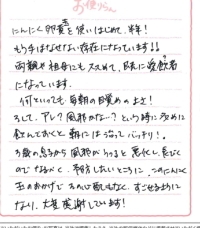 お便りん
にんにく卵黄を使いはじめて、半年！
もう今はなせない存在になっています!!
両親や祖母にもススめて、既に愛飲者
になっています。
何といっても、毎朝の目覚めの よさ！
そして、アレ？風邪かな…？という時に 多めに
飲んでおくと 朝にはなって バッチリ！。
3歳の息子から 風邪がうつると 悪化し、長びく
ので なるべく、予防したいところに、このにんにく
玉のおかげで その心配もなく すごせるように
なり、大変 感謝しています！